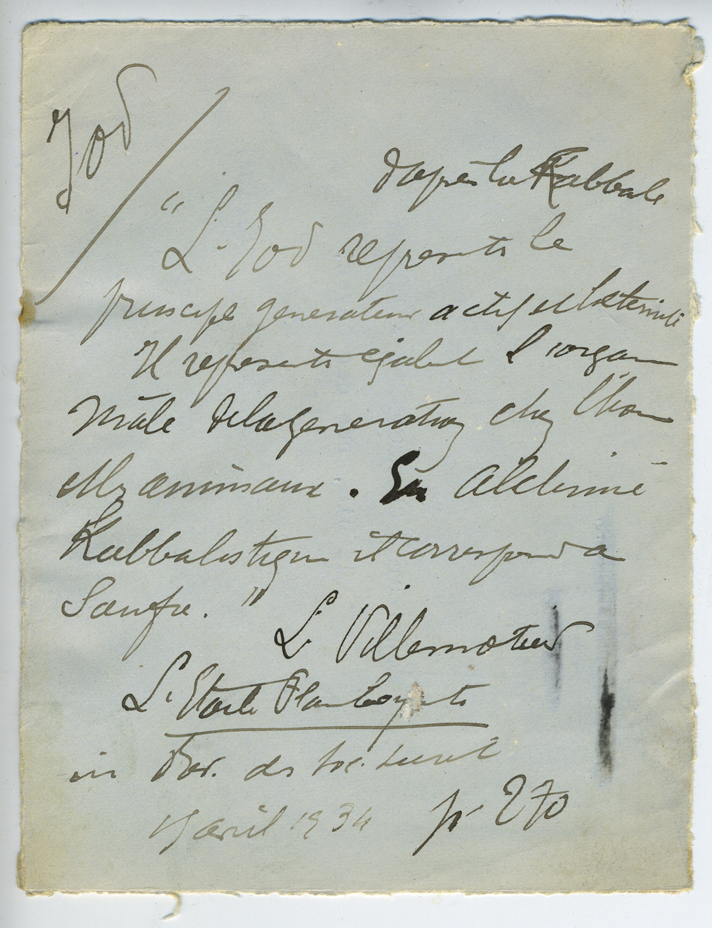 Jod
d'après la Kabbale
"L. Iod represente le
principe generateur actif
Il represente egalemt l'organ
Mâle de la generation chez l'hom
et les animaux. En Alchimie
Kabbalistique il correspond a
Soufre."
L. Villermotier
L'Etoile Flamboyante
in
avril 1934 p. 270